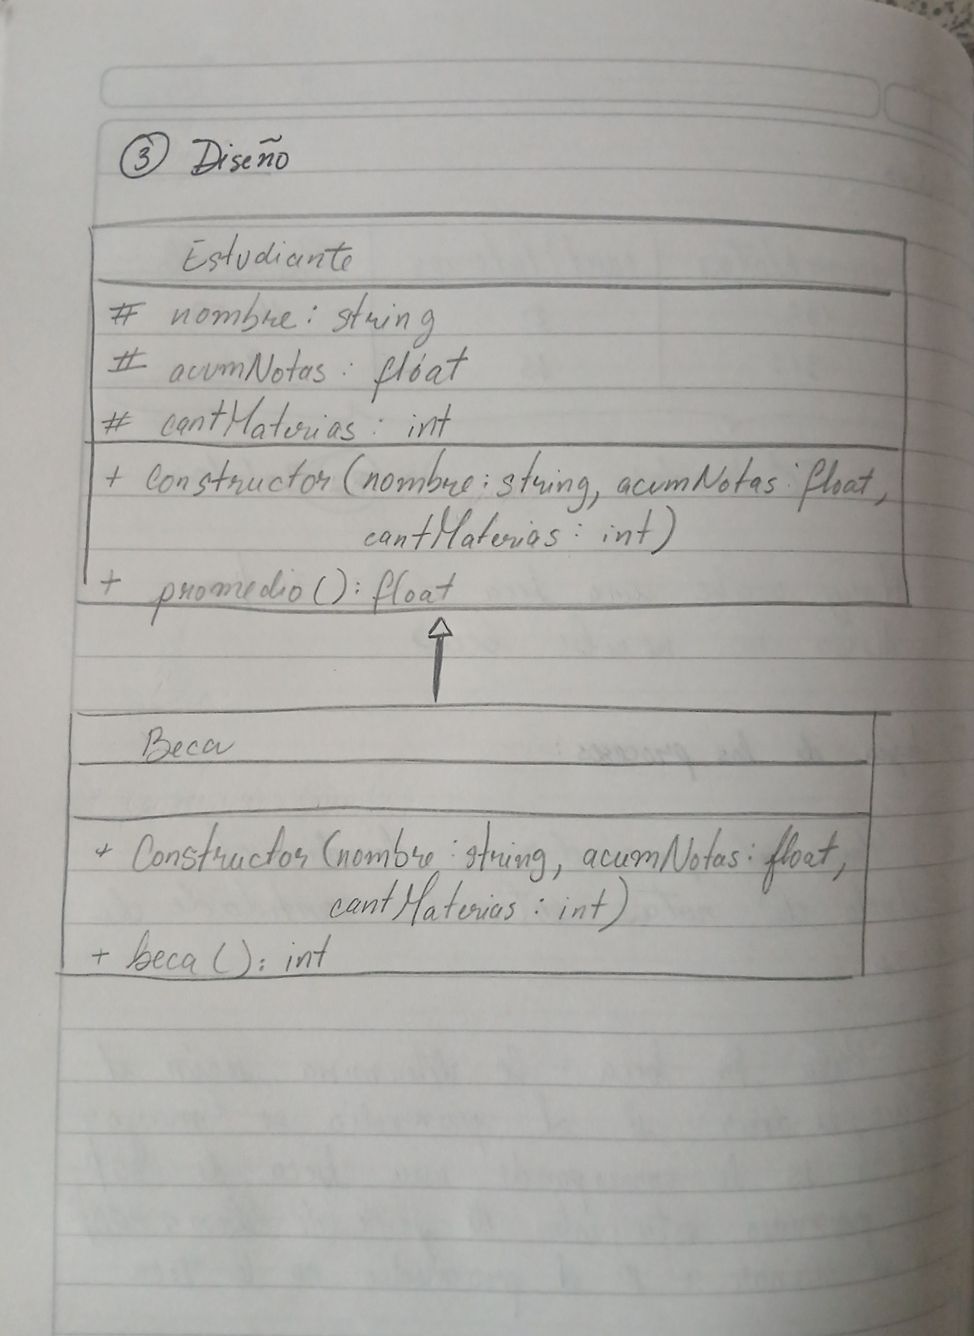 ③ Diseño
Estudiante
# nombre: string
# acumNotas: float
# cantMaterias: int
+ Constructor (nombre: string, acumNotas: float,
cantMaterias: int)
+ promedio(): float
Beca
+ Constructor (nombre: string, acumNotas: float,
cantMaterias: int)
+ beca(): int